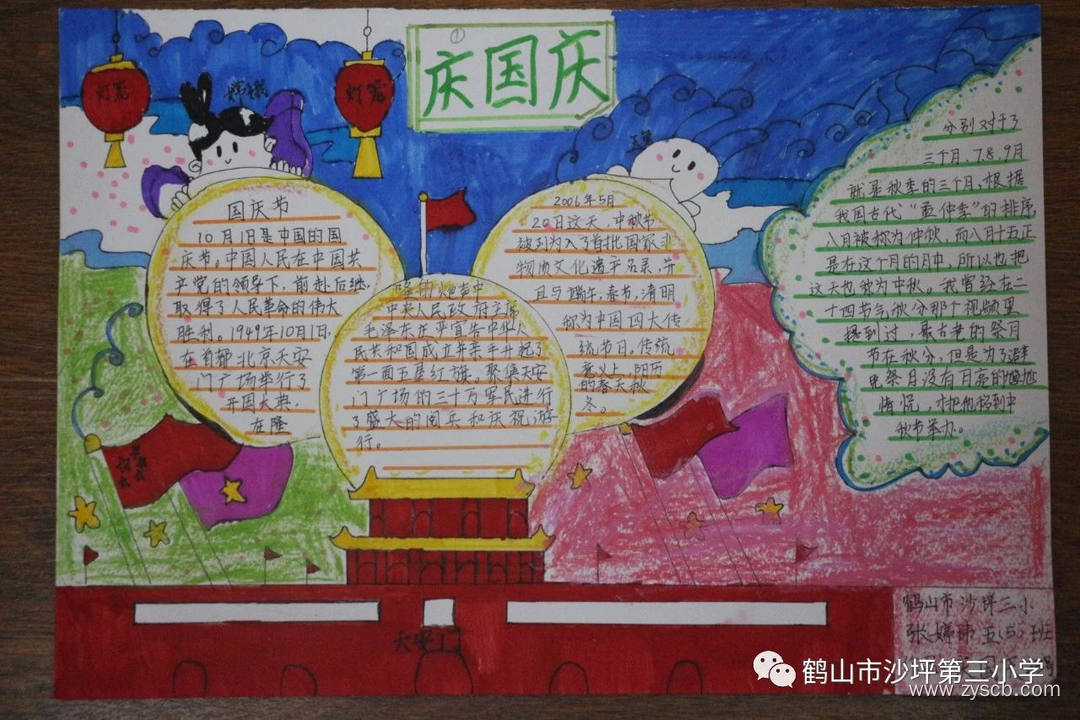 ①
庆国庆
灯笼
嫦娥
灯笼
玉兔
国庆节
10月1日是中国的国
庆节。中国人民在中国共
产党的领导下,前赴后继,
取得了人民革命的伟大
胜利。1949年10月1日,
在首都北京天安
门广场举行了
开国大典,
在隆
隆的炮声中
中央人民政府主席
毛泽东庄严宣告中华人
民共和国成立并亲手升起了
第一面五星红旗。聚集天安
门广场的三十万军民进行
了盛大的阅兵和庆祝游
行。
2006年5月
20日这天,中秋节
被列为入了首批国家非
物质文化遗产名录,并
且与端午,春节,清明
称为中国四大传
统节日,传统
意义上,阳历
的春天秋
冬。
分别对于了
三个月,7.8.9月
就是秋季的三个月,根据
我国古代“孟仲季”的排序,
八月被称为仲秋,而八月十五正
是在这个月的月中,所以也把
这天也称为中秋。我曾经在二
十四节气秋分那个视频里
提到过,最古老的祭月
节在秋分,但是为了避免
祭月没有月亮的尴尬
情况,才把他移到中
秋节举办。
天安门
鹤山市沙坪三小
五(5)班
鹤山市沙坪第三小学
www.zyscb.com